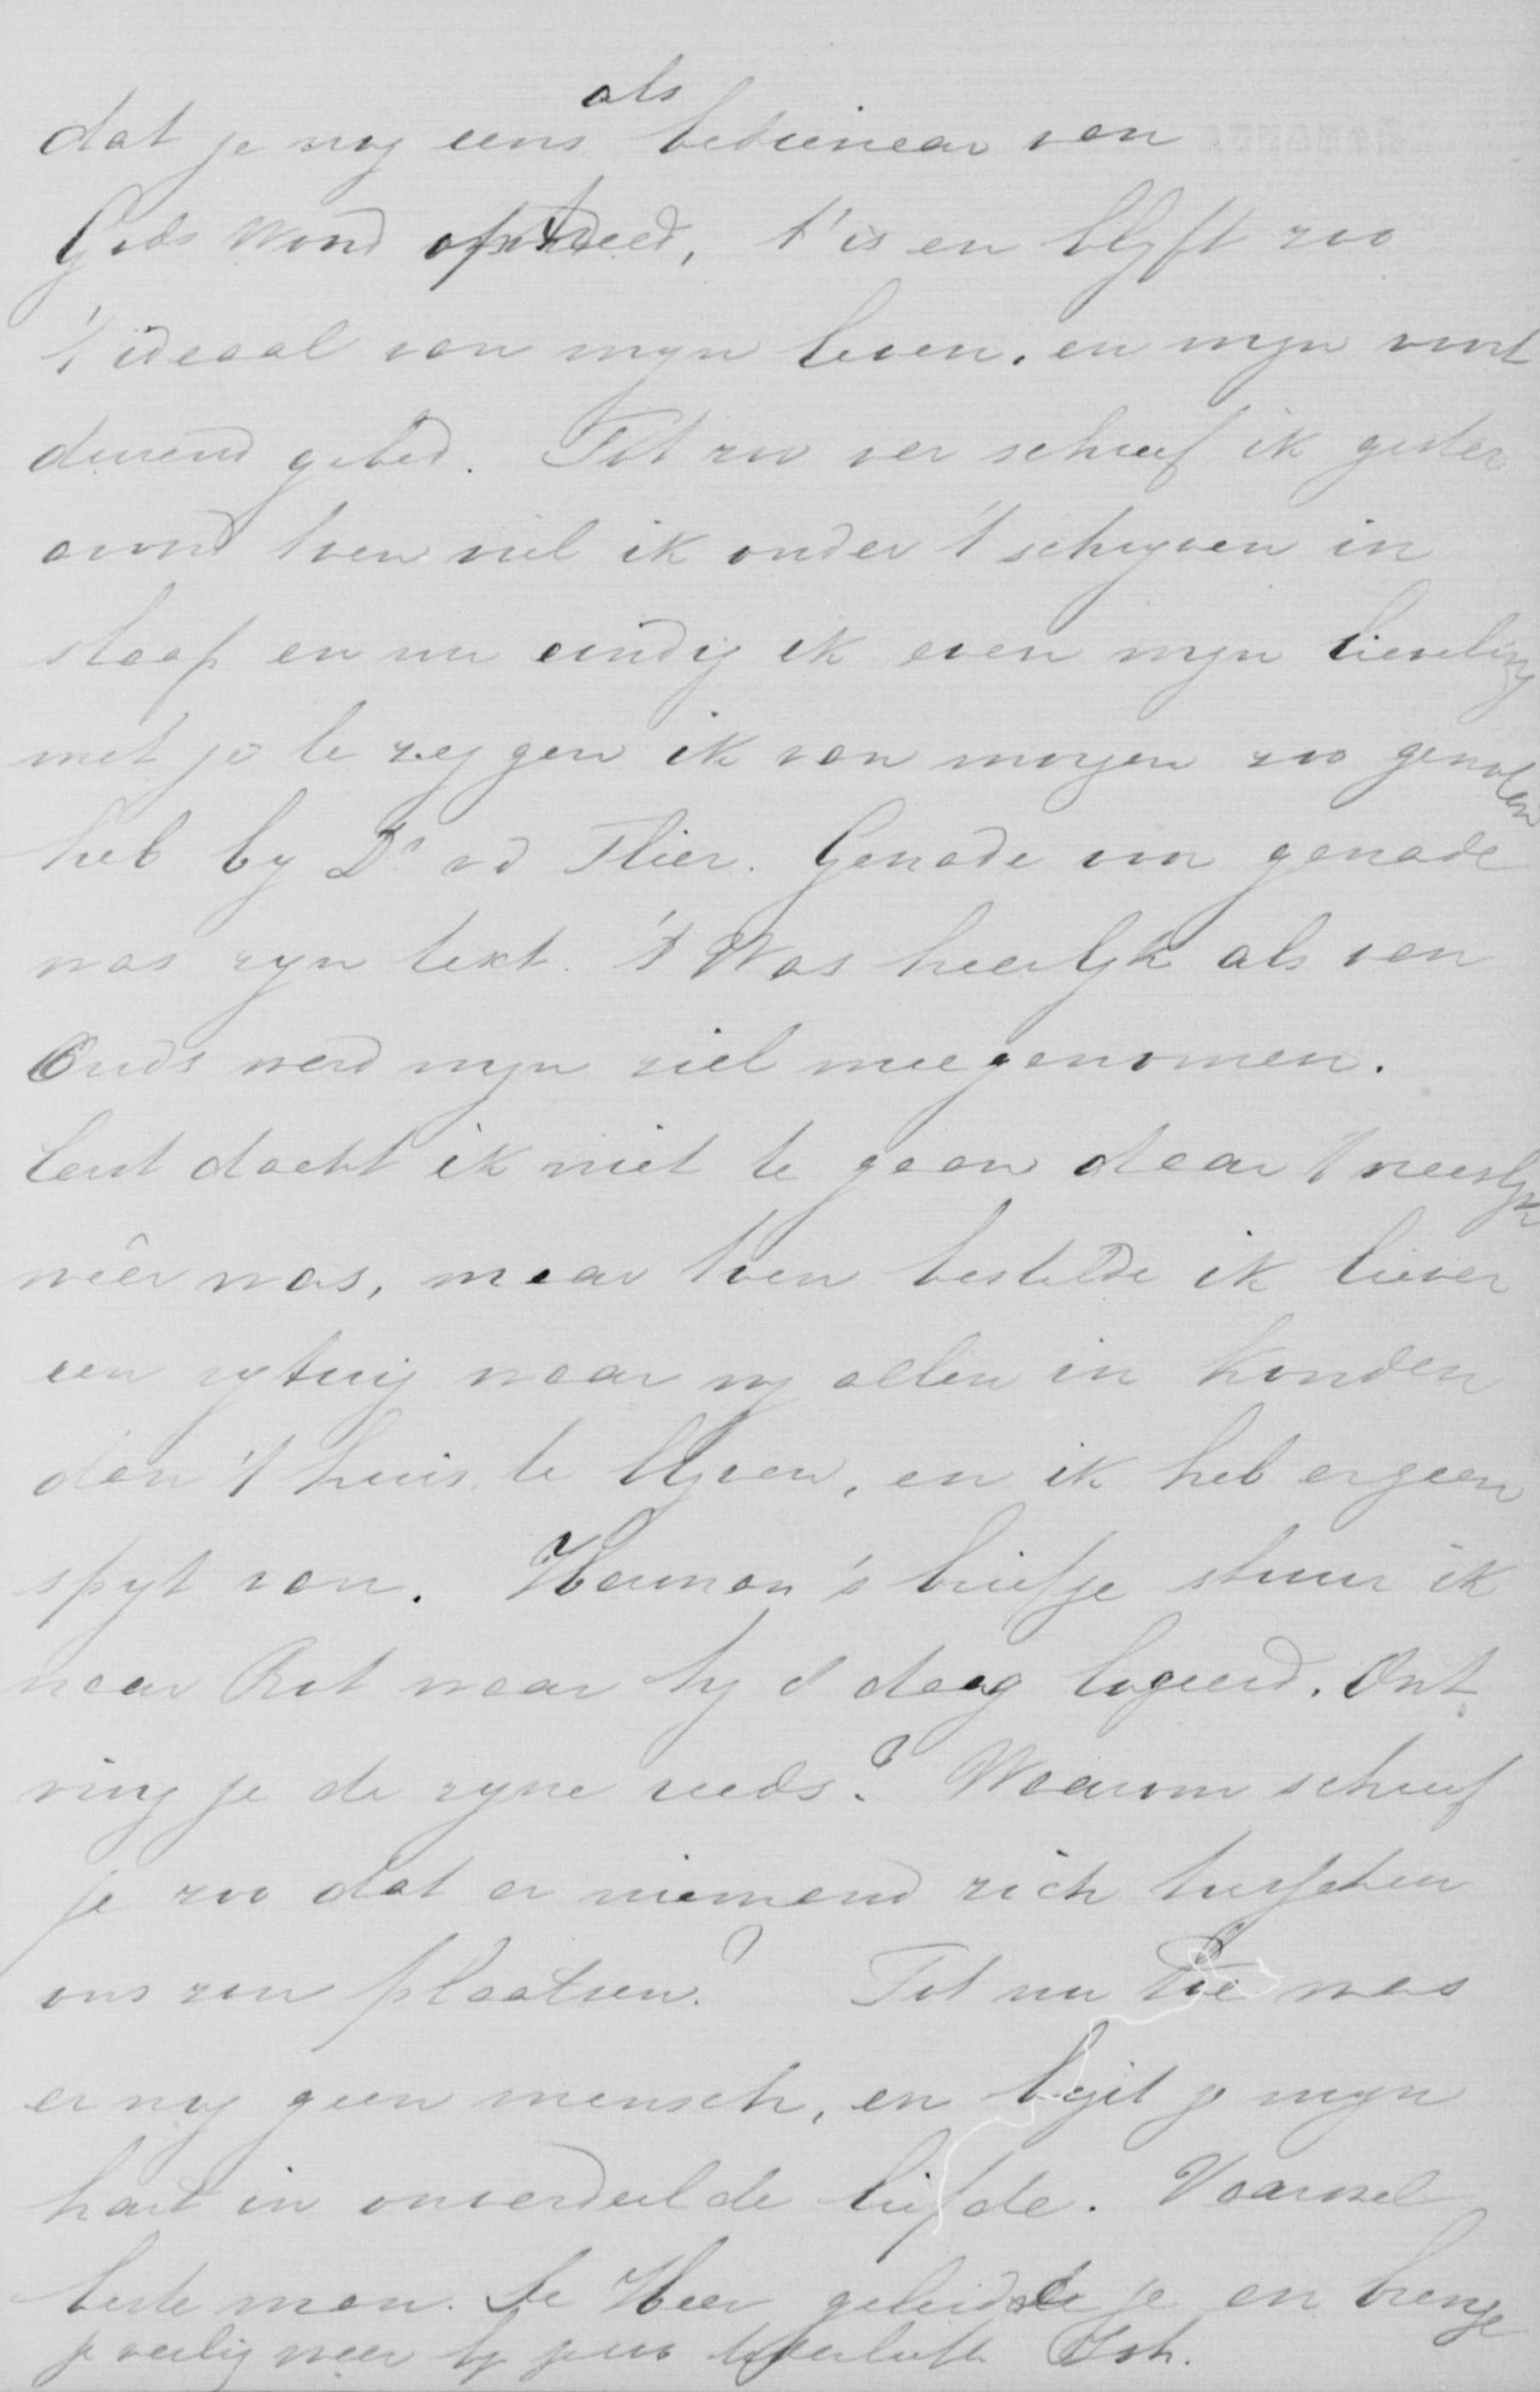 dat je nog eens als bedienear van
Gods Woord optreed, t'is en blyft zoo
't ideaal van myn leven. en myn voort
durend gebed. Tot zoo ver schreef ik gister
avond toen viel ik onder 't schryven in
slaap en nu eindig ik even myn lieveling
met je te zeggen ik van morgen zoo genoten
heb by Ds vd Flier. Genade voor genade
was zyn tekst. 't Was heerlyk als van
Ouds werd myn ziel meegenomen.
Eerst dacht ik niet te gaan daar 't vreeslyk
wêer was, maar toen bestelde ik liever
een rytuig waar wy allen in konden
dan 't huis te blyven, en ik heb ergeen
spyt van. Herman's briefje stuur ik
naar Rot waar hy d daag logeerd. Ont
ving je de zyne reeds? Waarom schreef
je zoo dat er niemand zich tusschen
ons zou plaatsen? Tot nu toe was
er nog geen mensch, en bezit je myn
hart in onverdeelde liefde. Vaarwel
beste man. De Heer geleide je en brenge
je veilig weer by jou liefste Joh.